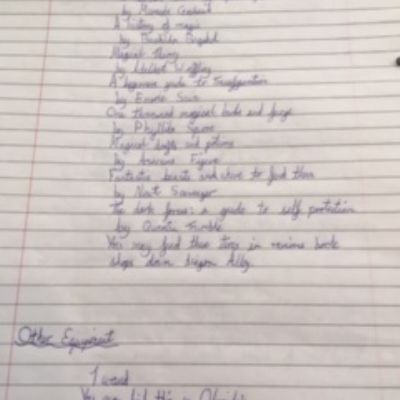 by Miranda Goshawk
A history of magic
by Bathilda Bagshot
Magical Theory
by Adalbert Waffling
A beginners guide to Transfiguration
by Emeric Swic
One thousand magical herbs and fungi
by Phyllida Spore
Magical drafts and potions
by Arsenius Figure
Fantastic beasts and where to find them
by Newt Scamager
The dark forces: a guide to self protection
by Quentin Trimble
You may find these in various book
shops down diagon Alley.
Other Equipment
1 wand
You can find this in